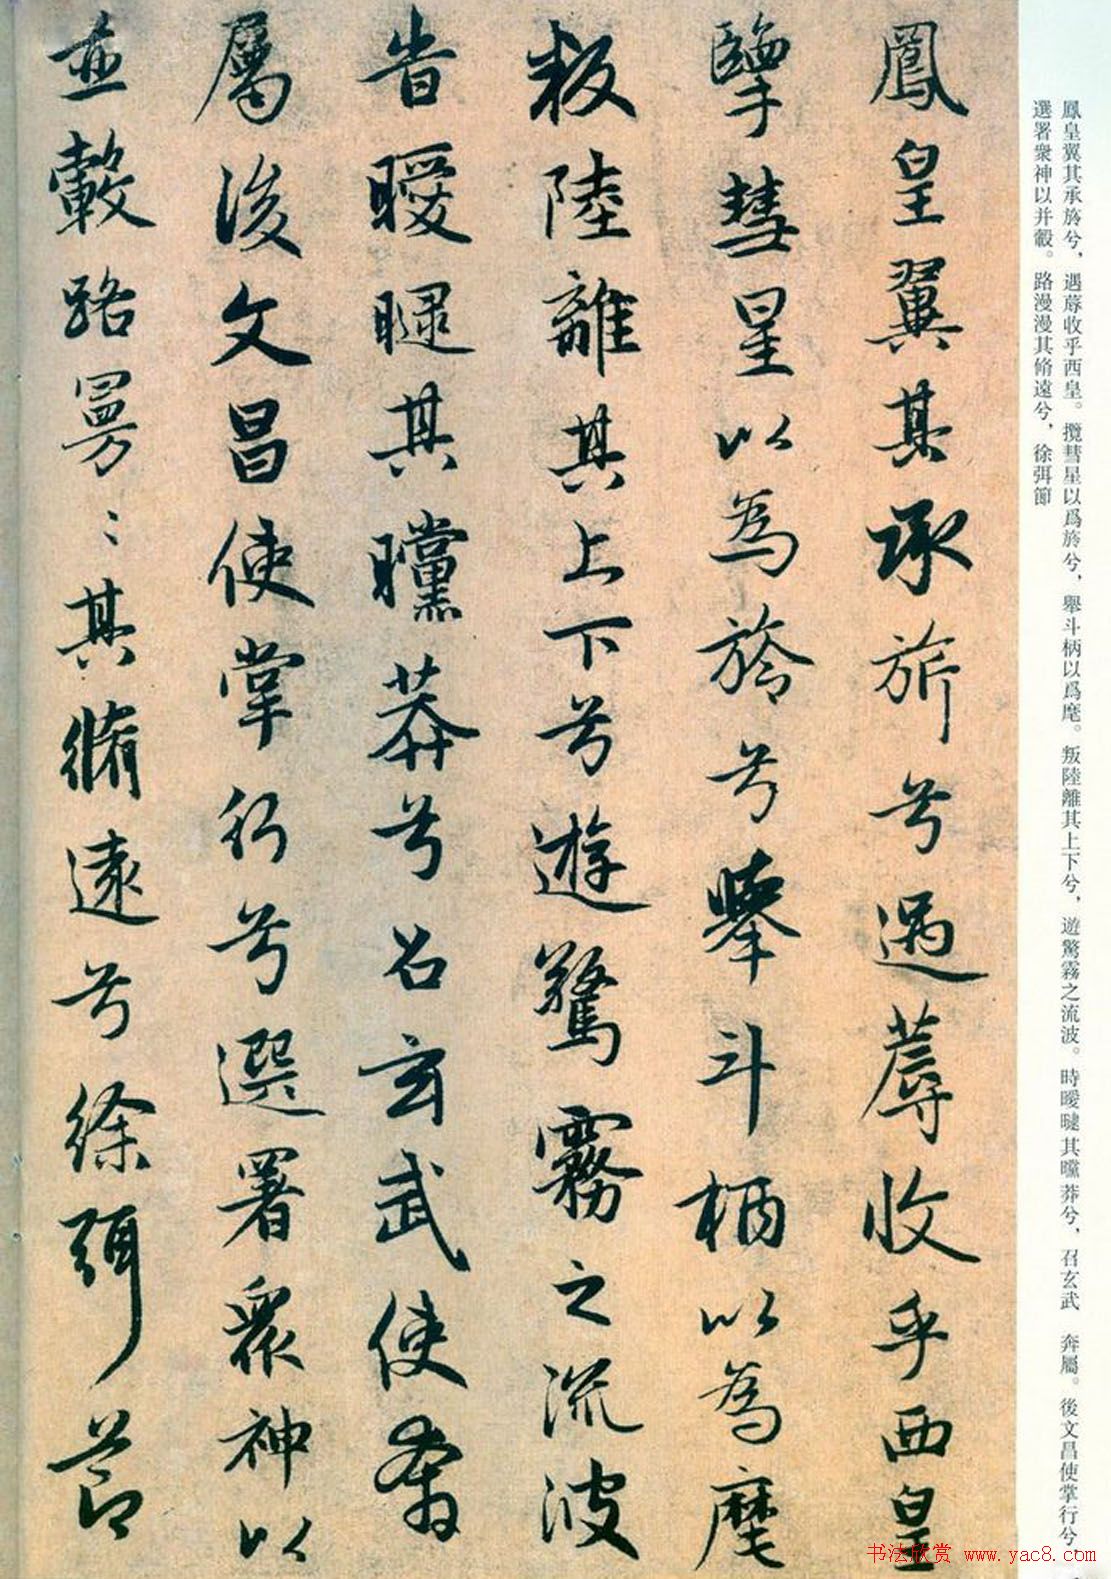 鳳皇翼其承旂兮遇蓐收乎西皇
擥彗星以為旍兮舉斗柄以為麾
叛陸離其上下兮遊驚霧之流波
旹曖曃其曭莽兮召玄武使奔
屬後文昌使掌行兮選署衆神以
並轂路曼〻其脩遠兮徐弭節
鳳皇翼其承旂兮，遇蓐收乎西皇。攬彗星以爲旍兮，舉斗柄以爲麾。叛陸離其上下兮，遊驚霧之流波。時曖曃其曭莽兮，召玄武　奔屬。後文昌使掌行兮，
選署衆神以并轂。路漫漫其脩遠兮，徐弭節
书法欣赏 www.yac8.com